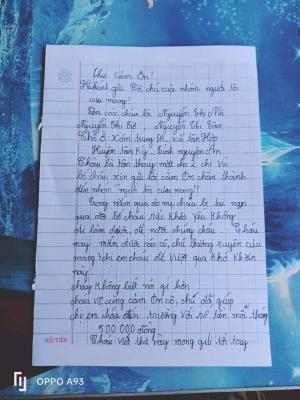 Thư Cảm Ơn!
Kính gửi Cô, chú của nhóm người tôi
cưu mang!
Tên các cháu là: Nguyễn Thị
Nguyễn Thị, Nguyễn Thị
Chỗ ở: xóm trung Độ. xã Tân Hợp
Huyện Tân Kỳ, tỉnh nguyễn An.
Cháu là tên thay mặt cho 2 chị Và
bố cháu xin gửi lời cảm ơn chân thành
đến nhóm "người tôi cưu mang"!
Trong năm qua do mẹ cháu bị tai nạn
qua đời bố cháu sức Khỏe yếu Không
đi làm được, để nuôi chúng cháu. Thì cháu
may mắn được các cô, chú thường xuyên cưu
mang chị em cháu để Vượt qua Khó Khăn
này
cháu Không biết nói gì hơn
cháu vô cùng cảm ơn cô, chú đã giúp
chị em cháu đến trường Với số tiền mỗi tháng
500.000 đồng.
Cháu Viết thư này mong gửi tới tay
HẢI TIẾN
OPPO A93